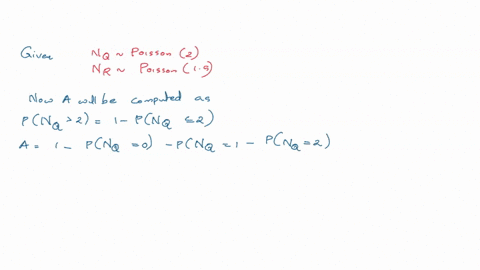 Given N_Q ~ Poisson (2)
N_R ~ Poisson (1.5)
Now A will be computed as
P(N_Q > 2) = 1 - P(N_Q ≤ 2)
A = 1 - P(N_Q = 0) - P(N_Q = 1 - P(N_Q = 2)